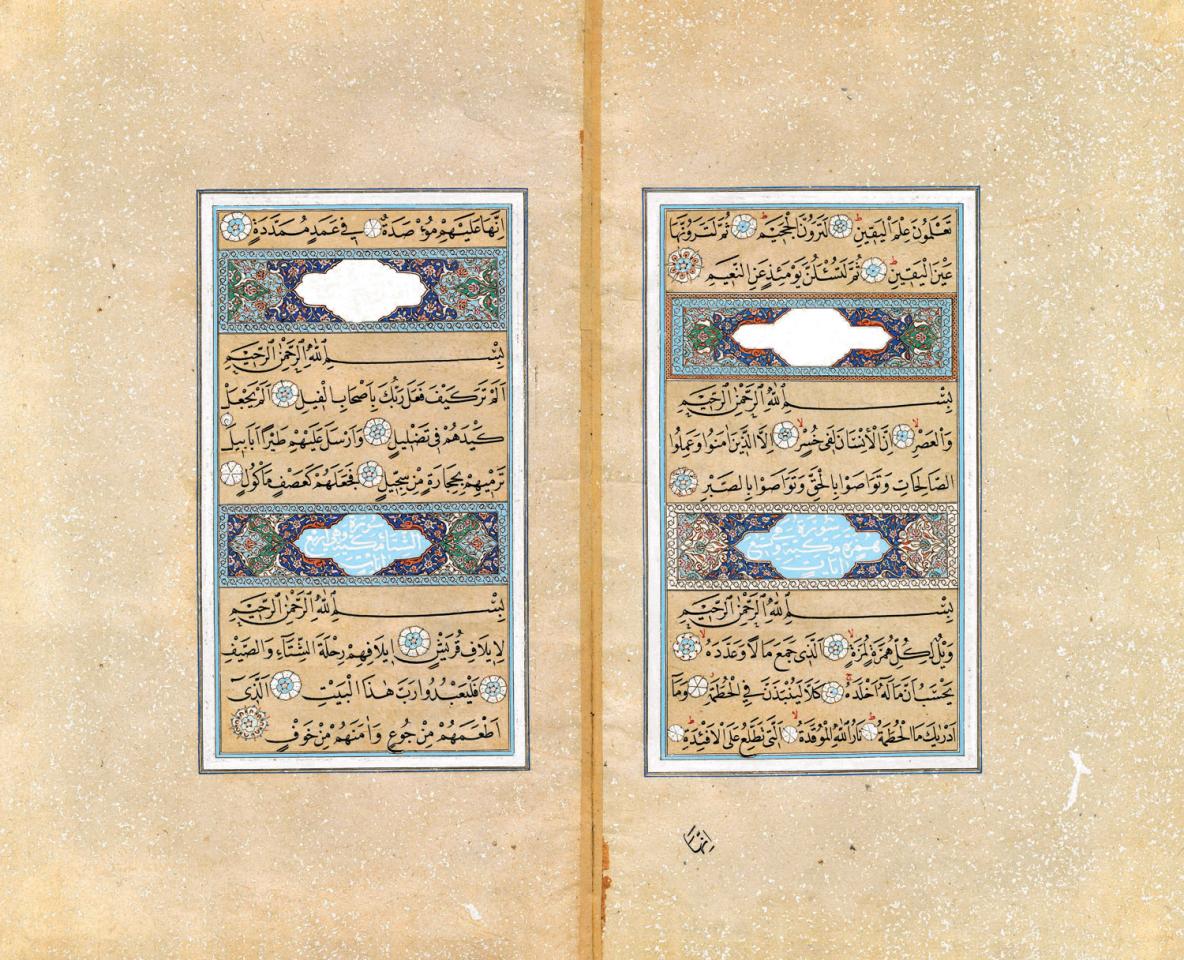 تَعْلَمُونَ عِلْمَ الْيَقِينِ لَتَرَوُنَّ الْجَحِيمَ ثُمَّ لَتَرَوُنَّهَا
عَيْنَ الْيَقِينِ ثُمَّ لَتُسْئَلُنَّ يَوْمَئِذٍ عَنِ النَّعِيمِ
بِسْمِ اللّٰهِ الرَّحْمٰنِ الرَّحِيمِ
وَالْعَصْرِ اِنَّ الْاِنْسَانَ لَفِى خُسْرٍ اِلَّا الَّذِينَ اٰمَنُوا وَعَمِلُوا
الصَّالِحَاتِ وَتَوَاصَوْا بِالْحَقِّ وَتَوَاصَوْا بِالصَّبْرِ
سورة
همزة مكية وهى تسع
اٰيات
بِسْمِ اللّٰهِ الرَّحْمٰنِ الرَّحِيمِ
وَيْلٌ لِكُلِّ هُمَزَةٍ لُمَزَةٍ اَلَّذِى جَمَعَ مَالًا وَعَدَّدَهُ
يَحْسَبُ اَنَّ مَالَهُ اَخْلَدَهُ كَلَّا لَيُنْبَذَنَّ فِى الْحُطَمَةِ وَمَا
اَدْرٰيكَ مَا الْحُطَمَةُ نَارُ اللّٰهِ الْمُوقَدَةُ اَلَّتِى تَطَّلِعُ عَلَى الْاَفْئِدَةِ
اِنَّهَا
اِنَّهَا عَلَيْهِمْ مُؤْصَدَةٌ فِى عَمَدٍ مُمَدَّدَةٍ
بِسْمِ اللّٰهِ الرَّحْمٰنِ الرَّحِيمِ
اَلَمْ تَرَ كَيْفَ فَعَلَ رَبُّكَ بِاَصْحَابِ الْفِيلِ اَلَمْ يَجْعَلْ
كَيْدَهُمْ فِى تَضْلِيلٍ وَاَرْسَلَ عَلَيْهِمْ طَيْرًا اَبَابِيلَ
تَرْمِيهِمْ بِحِجَارَةٍ مِنْ سِجِّيلٍ فَجَعَلَهُمْ كَعَصْفٍ مَأْكُولٍ
سورة
الشتاء مكية وهى اربع
اٰيات
بِسْمِ اللّٰهِ الرَّحْمٰنِ الرَّحِيمِ
لِاِيلَافِ قُرَيْشٍ اِيلَافِهِمْ رِحْلَةَ الشِّتَاءِ وَالصَّيْفِ
فَلْيَعْبُدُوا رَبَّ هٰذَا الْبَيْتِ اَلَّذِى
اَطْعَمَهُمْ مِنْ جُوعٍ وَاٰمَنَهُمْ مِنْ خَوْفٍ